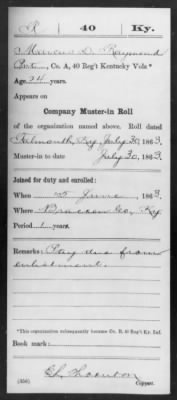 R | 40 | Ky.
Marcus D. Raymond
Pvt., Co. A, 40 Reg't Kentucky Vols*
Age 24 years.
Appears on
Company Muster-in Roll
of the organization named above. Roll dated
Falmouth, Ky., July 30, 1863.
Muster-in to date July 30, 1863
Joined for duty and enrolled:
When 5 June, 1863.
Where Bracken Co., Ky.
Period 1 years.
Remarks: Pay due from
enlistment.
*This organization subsequently became Co. , 40 Reg't Ky. Inf.
Book mark:
(356) Copyist.